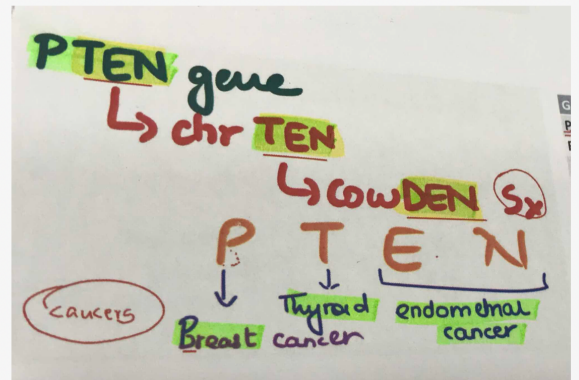 PTEN gene
↳ chr TEN
↳ cowDEN Sx
P T E N
cancers
Breast cancer
Thyroid
endometrial cancer